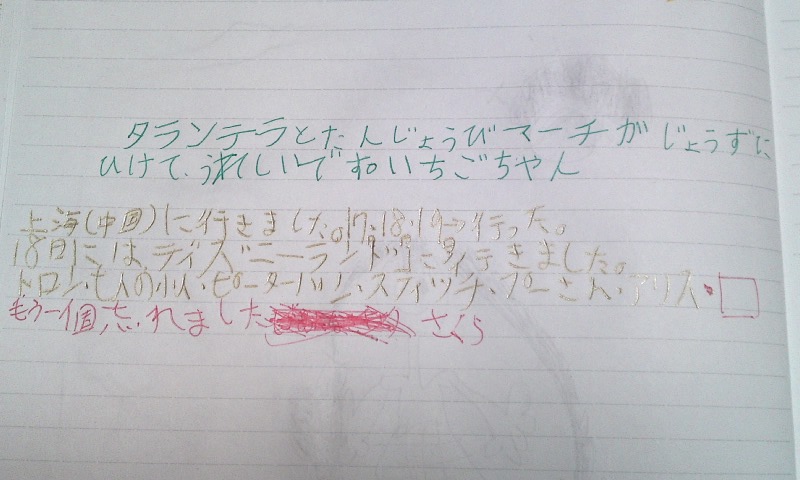 タランテラとたんじょうびマーチがじょうずに
ひけて、うれしいです。いちごちゃん
上海(中国)に行きました。17.18.19→行った。
18日にはディズニーランドに行きました。
トロン、七人の小人、ピーターパン、スティッチ、プーさん、アリス・□
もう一個忘れました さくら